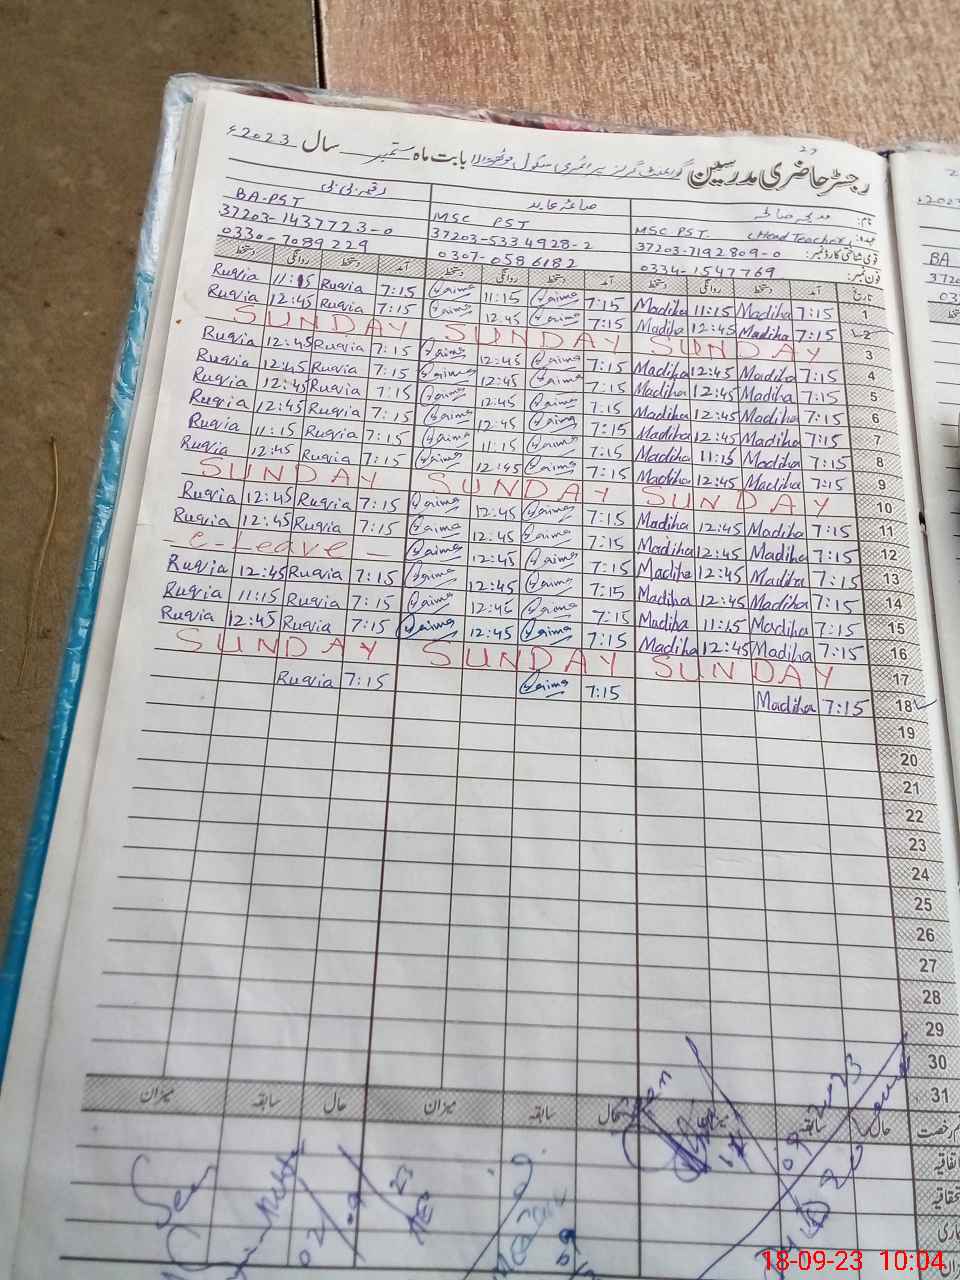 27
رجسٹر حاضری مدرسین گورنمنٹ گرلز پرائمری سکول بابت ماہ ستمبر سال 2023ء
نام: مدیحہ صائمہ عابد رقیہ بی بی
عہدہ: MSC PST (Head Teacher) MSC PST BA-PST
قومی شناختی کارڈ نمبر: 37203-7192809-0 37203-5334928-2 37203-1437723-0
فون نمبر: 0334-1547769 0307-0586182 0330-7089229
تاریخ آمد دستخط روانگی دستخط آمد دستخط روانگی دستخط آمد دستخط روانگی دستخط
1 7:15 Madiha 11:15 Madiha 7:15 Saima 11:15 Saima 7:15 Ruqvia 11:15 Ruqvia
2 7:15 Madiha 12:45 Madiha 7:15 Saima 12:45 Saima 7:15 Ruqvia 12:45 Ruqvia
3 SUNDAY SUNDAY SUNDAY
4 7:15 Madiha 12:45 Madiha 7:15 Saima 12:45 Saima 7:15 Ruqvia 12:45 Ruqvia
5 7:15 Madiha 12:45 Madiha 7:15 Saima 12:45 Saima 7:15 Ruqvia 12:45 Ruqvia
6 7:15 Madiha 12:45 Madiha 7:15 Saima 12:45 Saima 7:15 Ruqvia 12:45 Ruqvia
7 7:15 Madiha 12:45 Madiha 7:15 Saima 12:45 Saima 7:15 Ruqvia 12:45 Ruqvia
8 7:15 Madiha 11:15 Madiha 7:15 Saima 11:15 Saima 7:15 Ruqvia 11:15 Ruqvia
9 7:15 Madiha 12:45 Madiha 7:15 Saima 12:45 Saima 7:15 Ruqvia 12:45 Ruqvia
10 SUNDAY SUNDAY SUNDAY
11 7:15 Madiha 12:45 Madiha 7:15 Saima 12:45 Saima 7:15 Ruqvia 12:45 Ruqvia
12 7:15 Madiha 12:45 Madiha 7:15 Saima 12:45 Saima 7:15 Ruqvia 12:45 Ruqvia
13 7:15 Madiha 12:45 Madiha 7:15 Saima 12:45 Saima - C-Leave -
14 7:15 Madiha 12:45 Madiha 7:15 Saima 12:45 Saima 7:15 Ruqvia 12:45 Ruqvia
15 7:15 Madiha 11:15 Madiha 7:15 Saima 12:46 Saima 7:15 Ruqvia 11:15 Ruqvia
16 7:15 Madiha 12:45 Madiha 7:15 Saima 12:45 Saima 7:15 Ruqvia 12:45 Ruqvia
17 SUNDAY SUNDAY SUNDAY
18 7:15 Madiha 7:15 Saima 7:15 Ruqvia
19
20
21
22
23
24
25
26
27
28
29
30
31
رخصت حال سابقہ میزان حال سابقہ میزان حال سابقہ میزان
اتفاقیہ
See
18-09-23 10:04